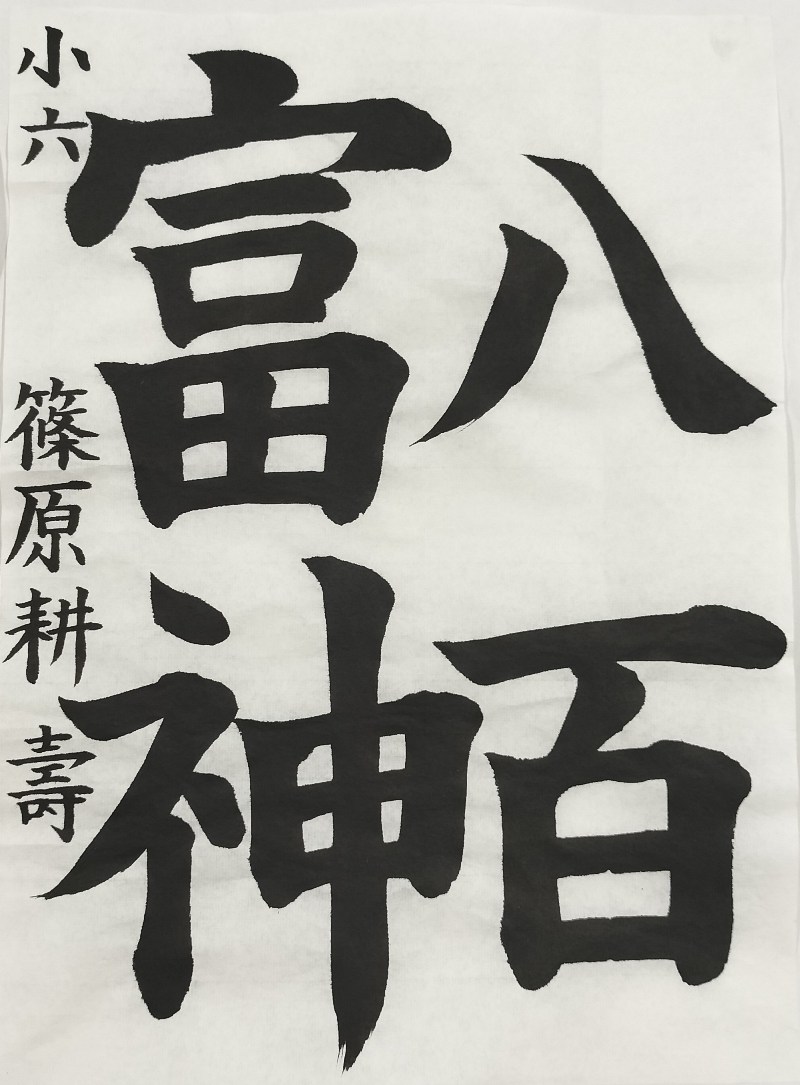 八百
富神
小六 篠原耕壽